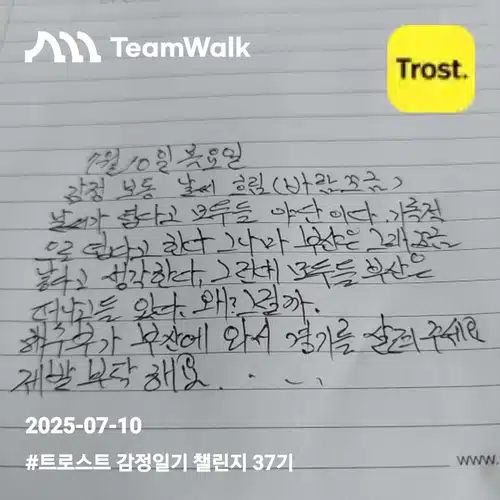 TeamWalk
Trost.
7월 10일 목요일
감정 보통 날씨 흐림(바람 쪼금)
날씨가 덥다고 모두들 야단이다. 기록적
으로 덥다고 한다 그나마 부산은 그래 쪼금
낫다고 생각한다. 그런데 모두들 부산은
떠나고들 있다. 왜? 그럴까.
해수부가 부산에 와서 경기를 살려 주세요
제발 부탁 해요. . . .
2025-07-10
#트로스트 감정일기 챌린지 37기
www.